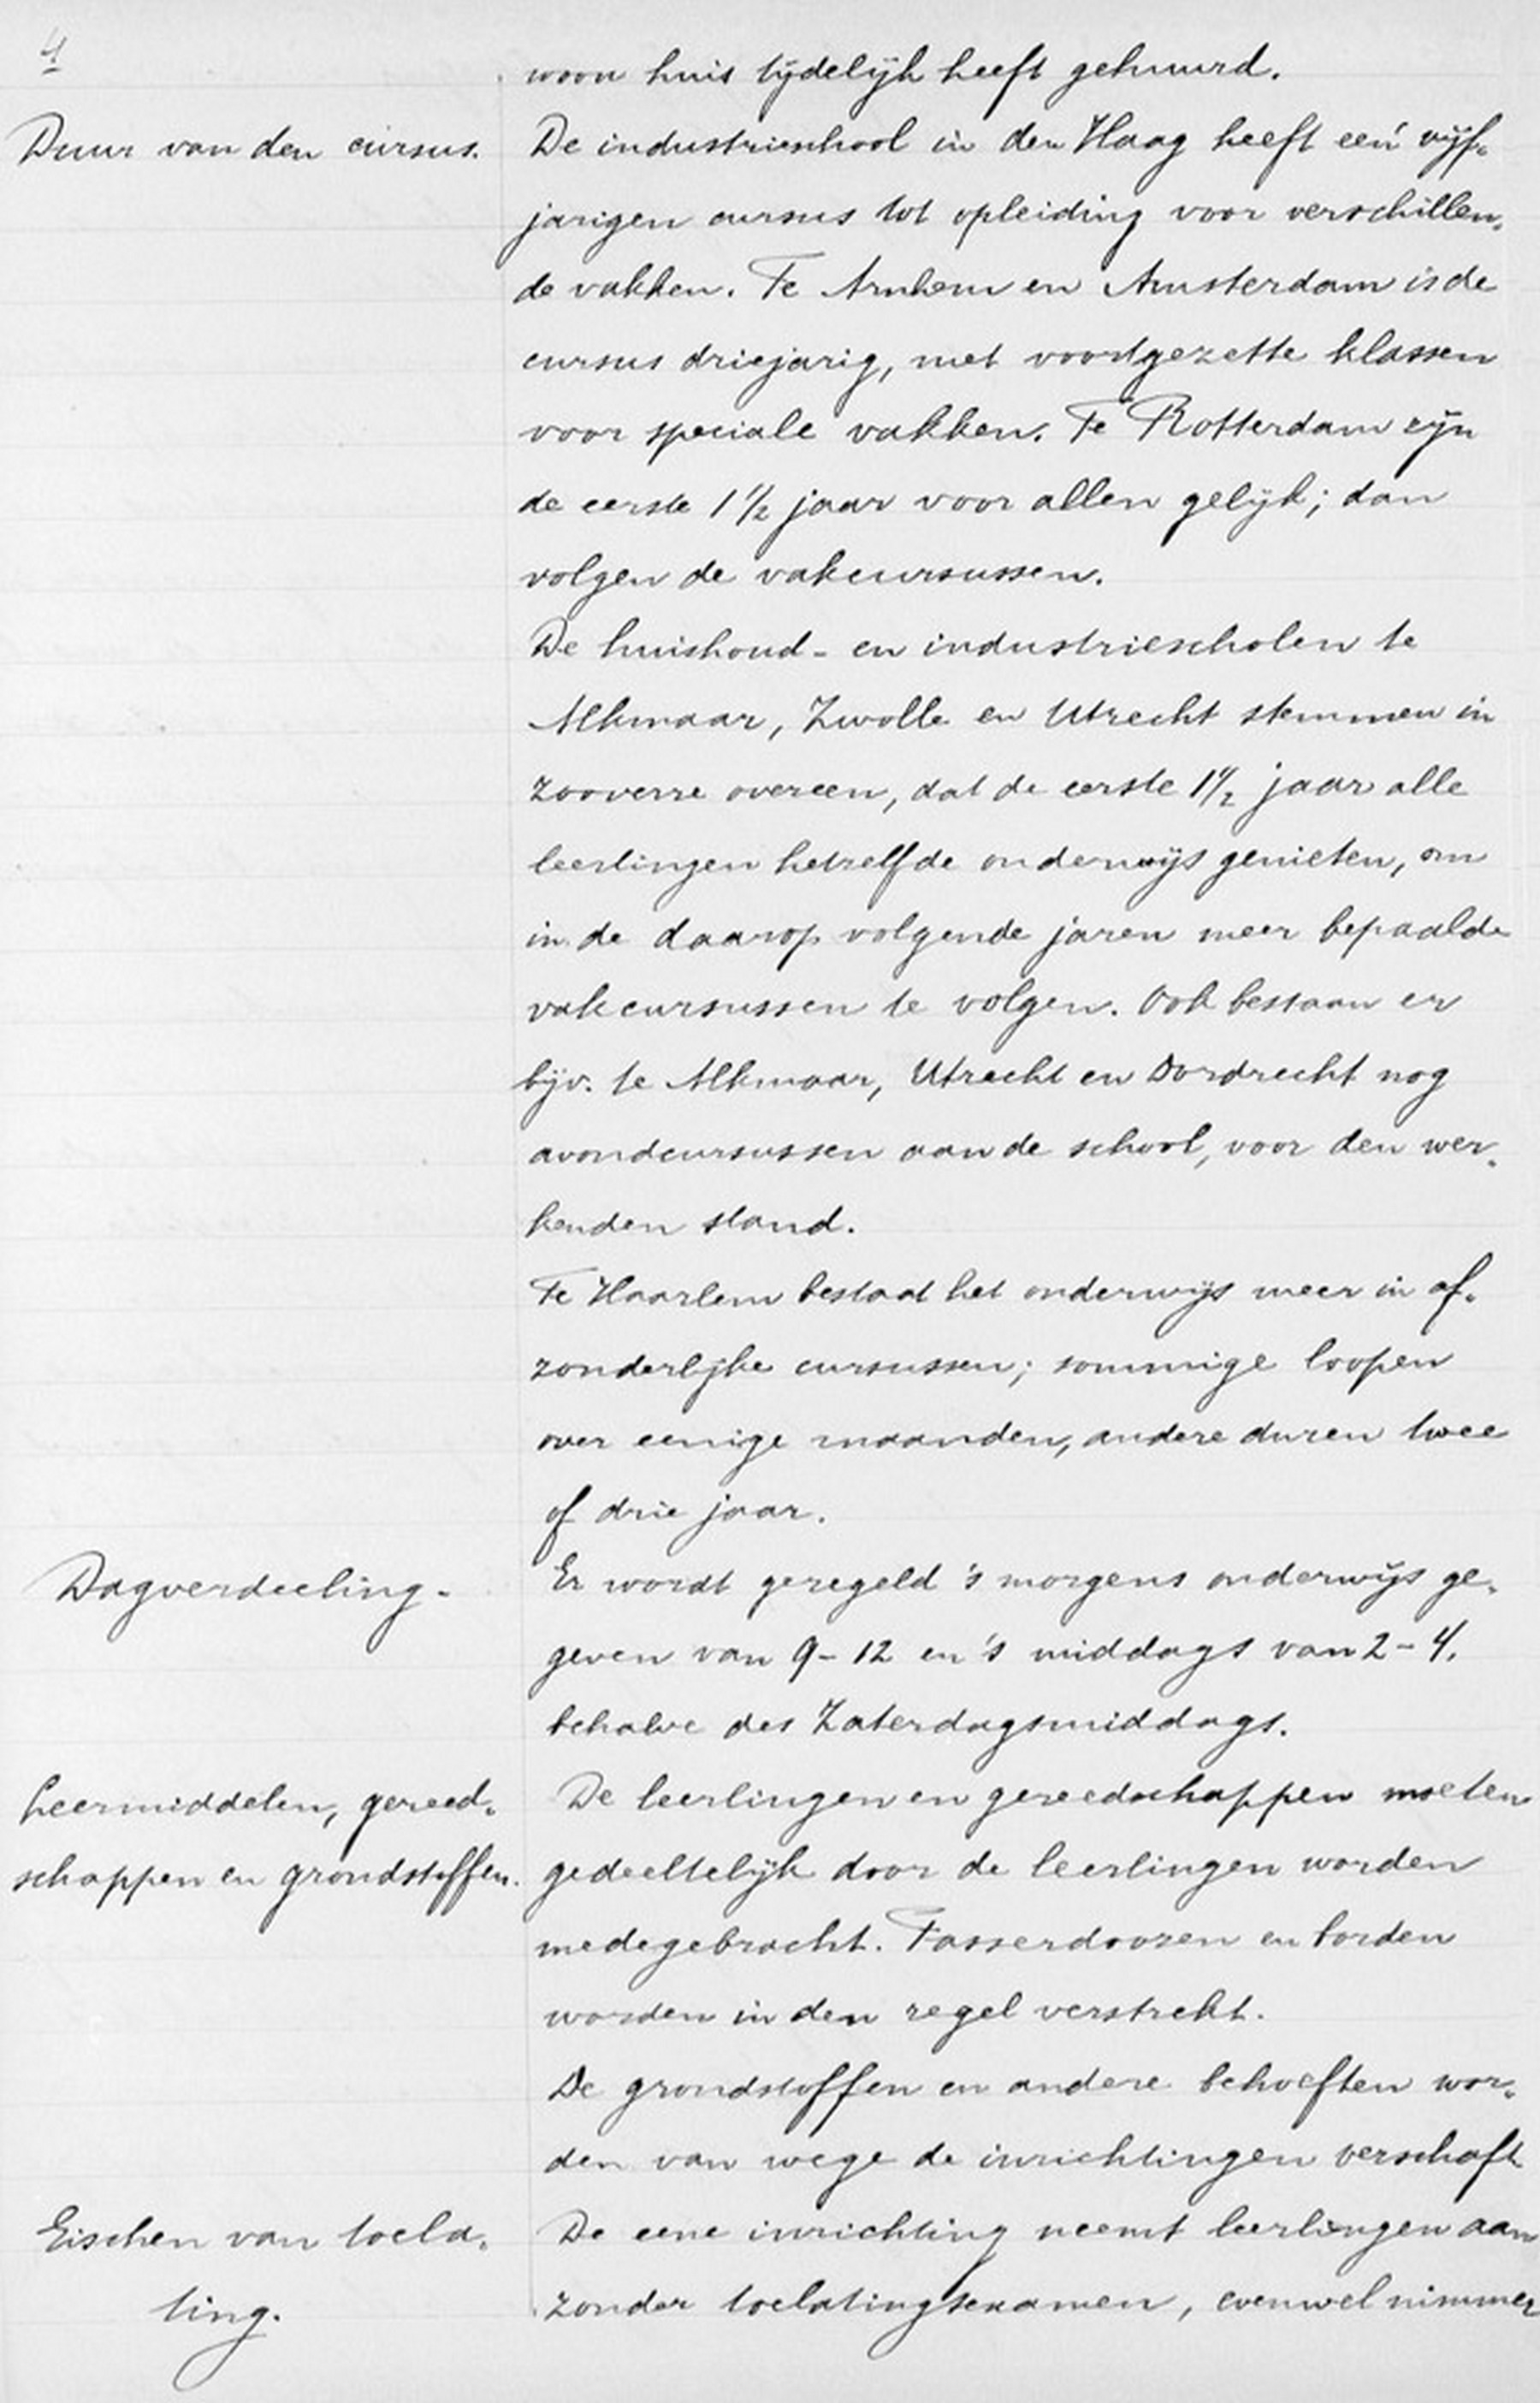 4
woon huis tijdelijk heeft gehuurd.
Duur van den cursus.
De industrieschool in den Haag heeft een vijf-
jarigen cursus tot opleiding voor verschillen-
de vakken. Te Arnhem en Amsterdam is de
cursus driejarig, met voortgezette klassen
voor speciale vakken. Te Rotterdam zijn
de eerste 1 1/2 jaar voor allen gelijk; dan
volgen de vakcursussen.
De huishoud- en industriescholen te
Alkmaar, Zwolle en Utrecht stemmen in
zooverre overeen, dat de eerste 1 1/2 jaar alle
leerlingen hetzelfde onderwijs genieten, om
in de daarop volgende jaren meer bepaalde
vakcursussen te volgen. Ook bestaan er
bijv. te Alkmaar, Utrecht en Dordrecht nog
avondcursussen aan de school, voor den wer-
kenden stand.
Te Haarlem bestaat het onderwijs meer in af-
zonderlijke cursussen; sommige loopen
over eenige maanden, andere duren twee
of drie jaar.
Dagverdeeling.
Er wordt geregeld 's morgens onderwijs ge-
geven van 9-12 en 's middags van 2-4.
behalve des Zaterdagsmiddags.
Leermiddelen, gereed-
schappen en grondstoffen.
De leerlingen en gereedschappen moeten
gedeeltelijk door de leerlingen worden
medegebracht. Passerdoozen en borden
worden in den regel verstrekt.
De grondstoffen en andere behoeften wor-
den van wege de inrichtingen verschaft
Eischen van toela-
ting.
De eene inrichting neemt leerlingen aan
zonder toelatingsexamen, evenwel nimmer